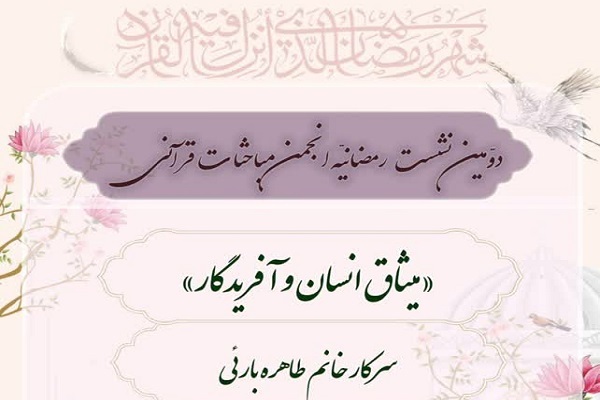 شهر رمضان الذی أنزل فیه القرآن
دوّمین نشست رمضانیّه انجمن مباحثات قرآنی
«میثاق انسان و آفریدگار»
سرکار خانم طاهره بارئی